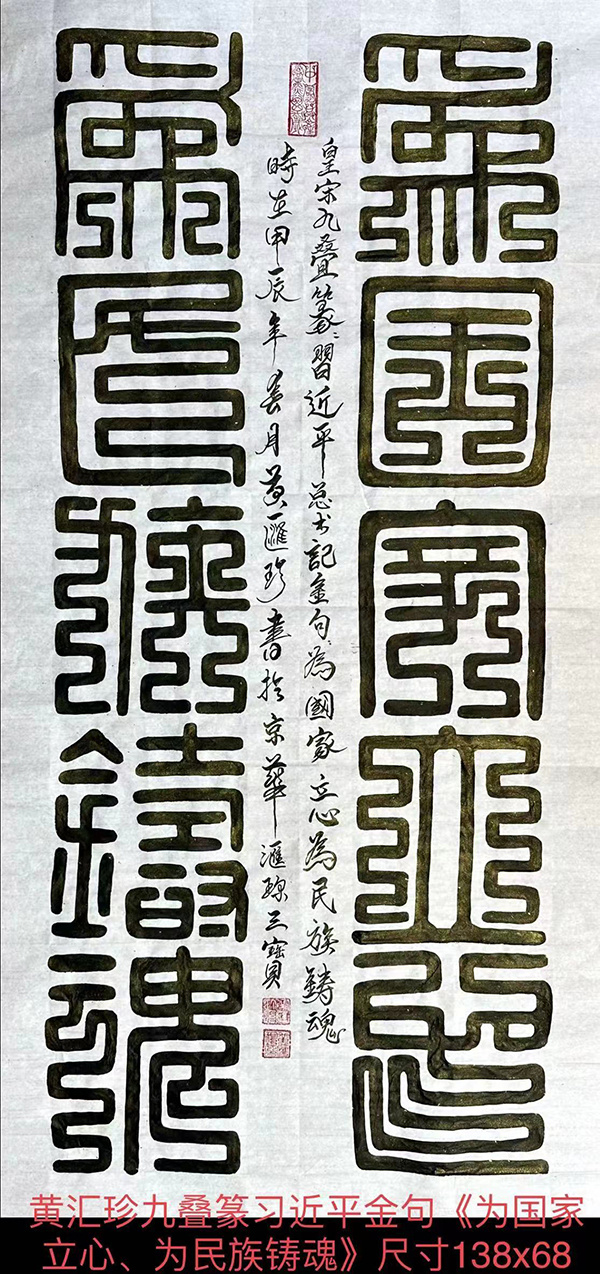 為國家立心
皇宋九疊篆:習近平总书記金句:為國家立心為民族鑄魂
時在甲辰年春月黄滙珍書於京華滙珎三寶
為民族鑄魂
黄汇珍九叠篆习近平金句《为国家
立心、为民族铸魂》尺寸138x68